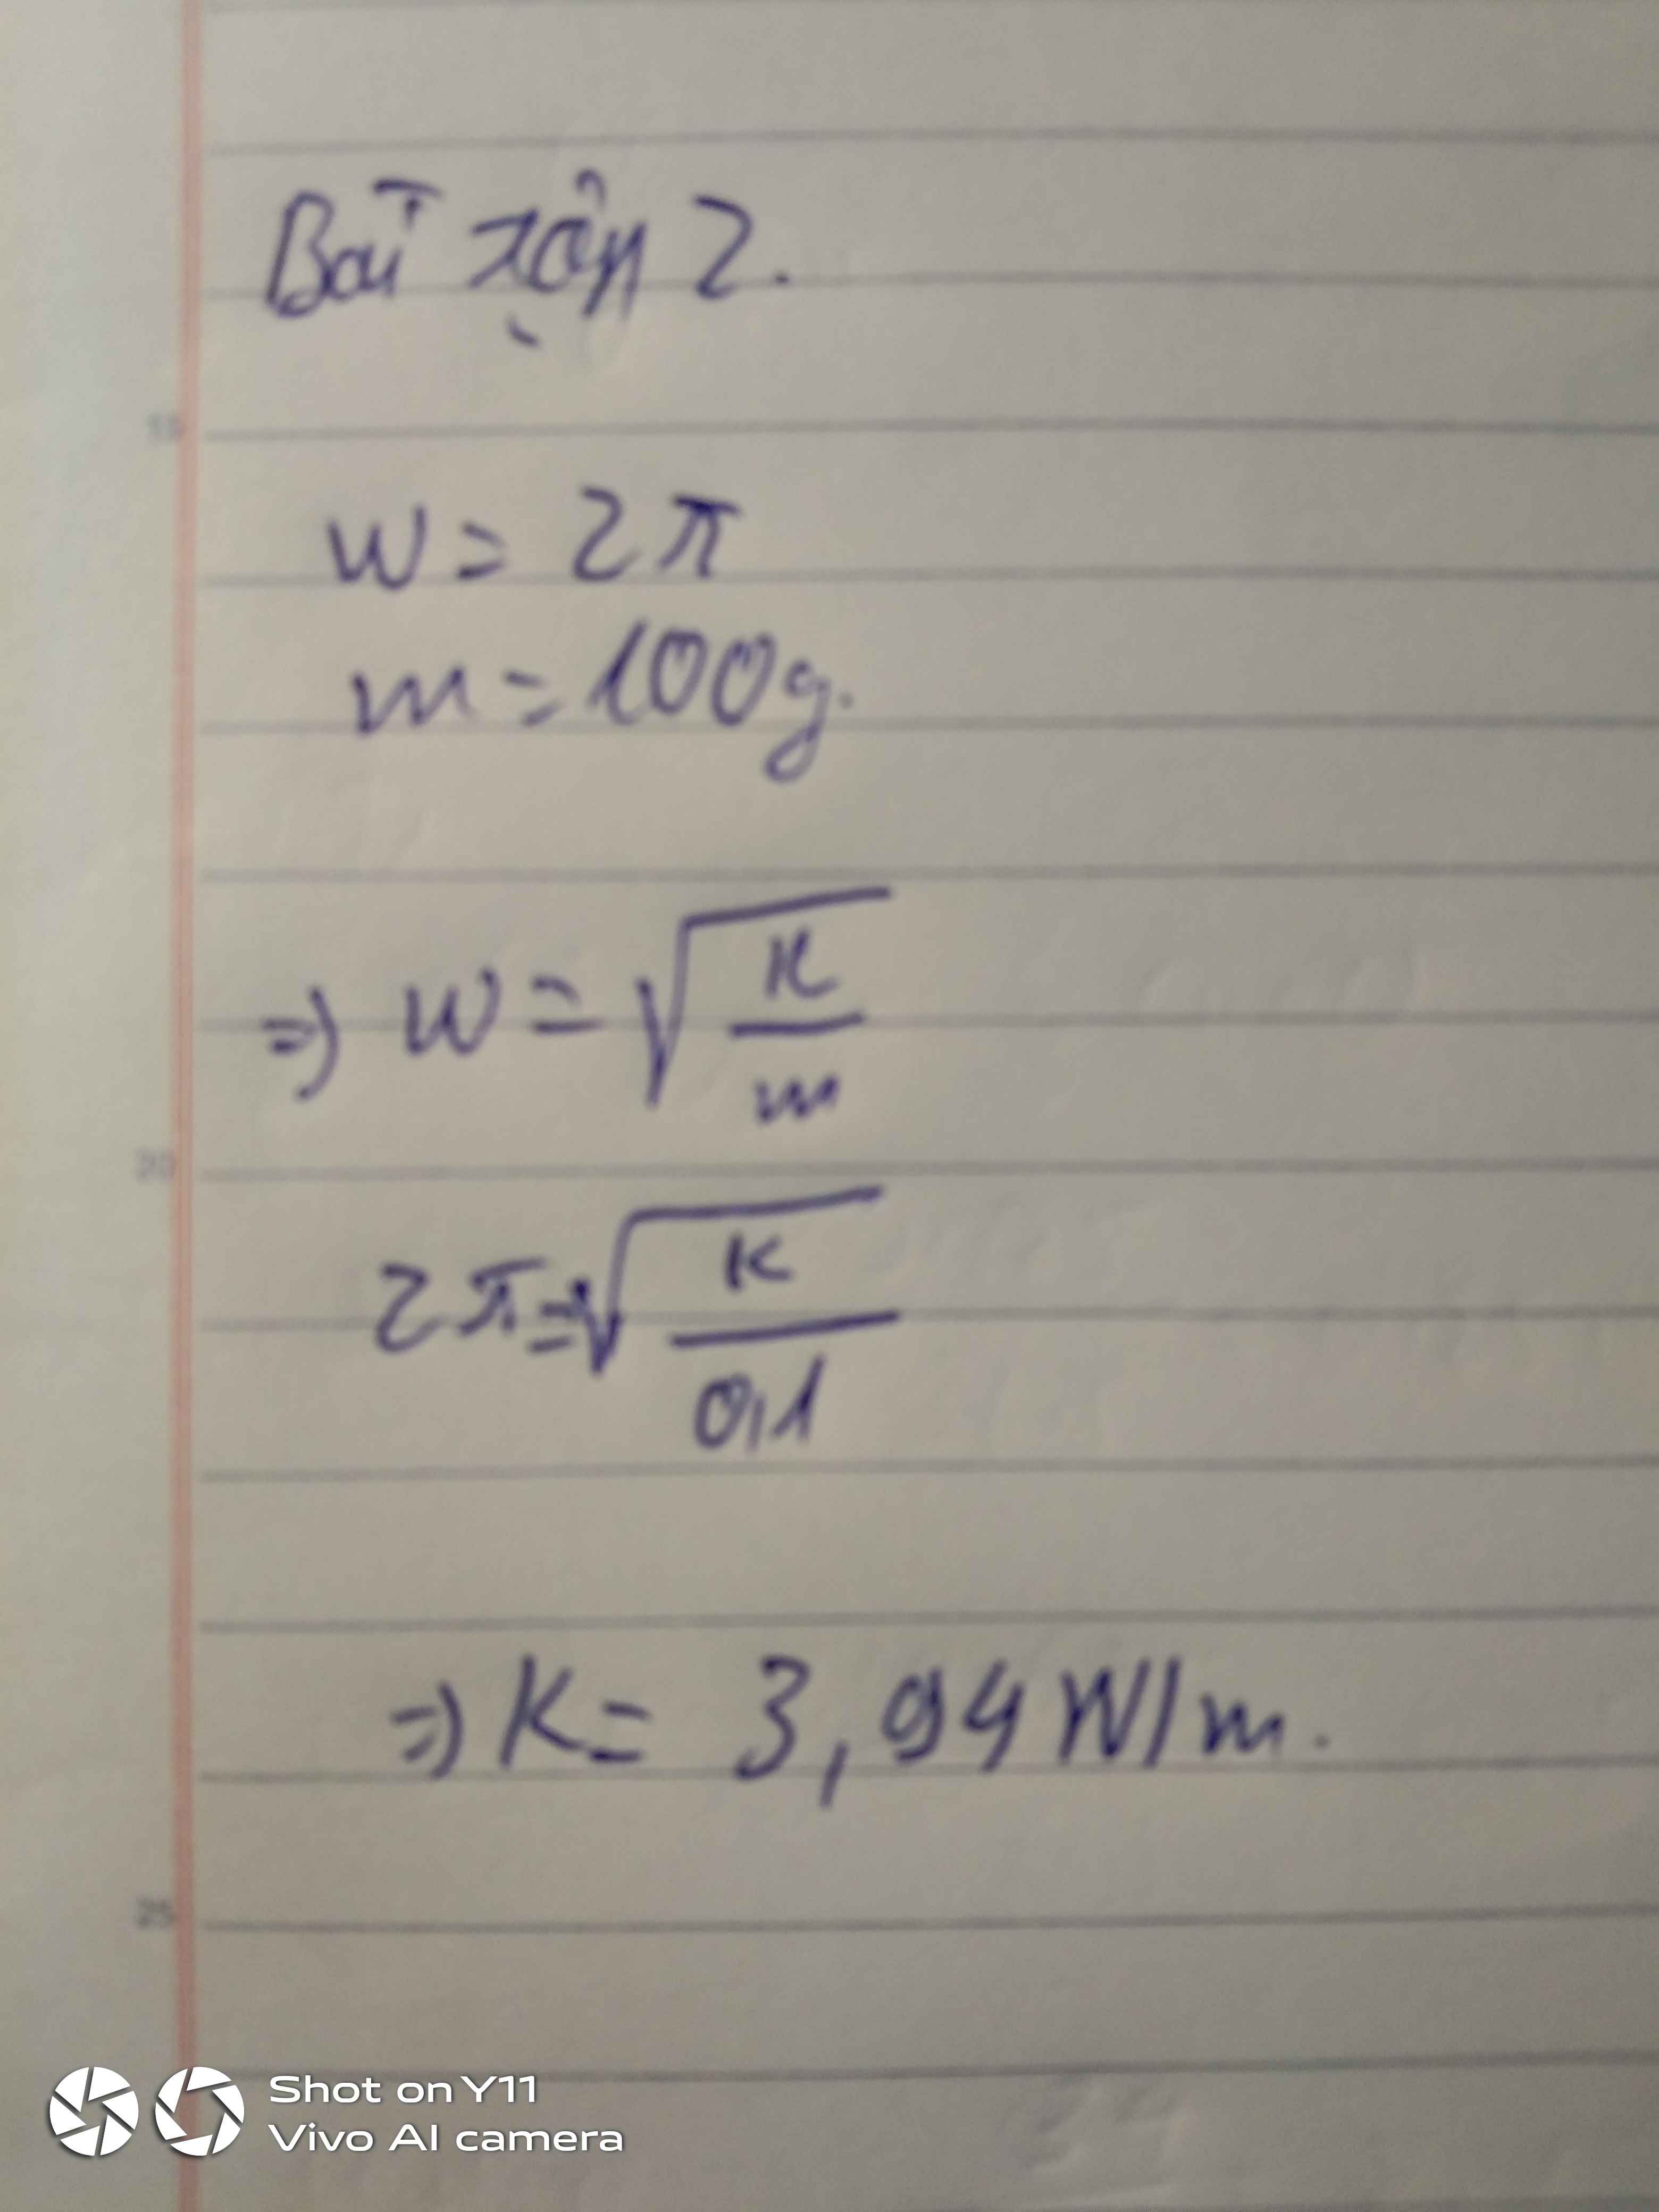 Bài tập 2.
15
w = 2π
m = 100g.
=> w = √(K/m)
20
2π = √(K/0,1)
=> K = 3,94 N/m.
25
Shot on Y11
Vivo AI camera